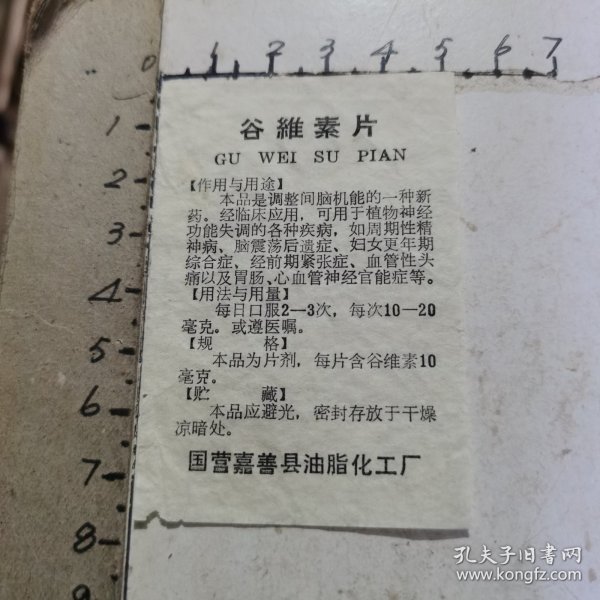 0 1 2 3 4 5 6 7
1
2
3
4
5
6
7
8
9
谷維素片
GU WEI SU PIAN
【作用与用途】
本品是调整间脑机能的一种新
药。经临床应用,可用于植物神经
功能失调的各种疾病,如周期性精
神病、脑震荡后遗症、妇女更年期
综合症、经前期紧张症、血管性头
痛以及胃肠、心血管神经官能症等。
【用法与用量】
每日口服2—3次,每次10—20
毫克。或遵医嘱。
【规 格】
本品为片剂,每片含谷维素10
毫克。
【贮 藏】
本品应避光,密封存放于干燥
凉暗处。
国营嘉善县油脂化工厂
孔夫子旧书网
www.kongfz.com